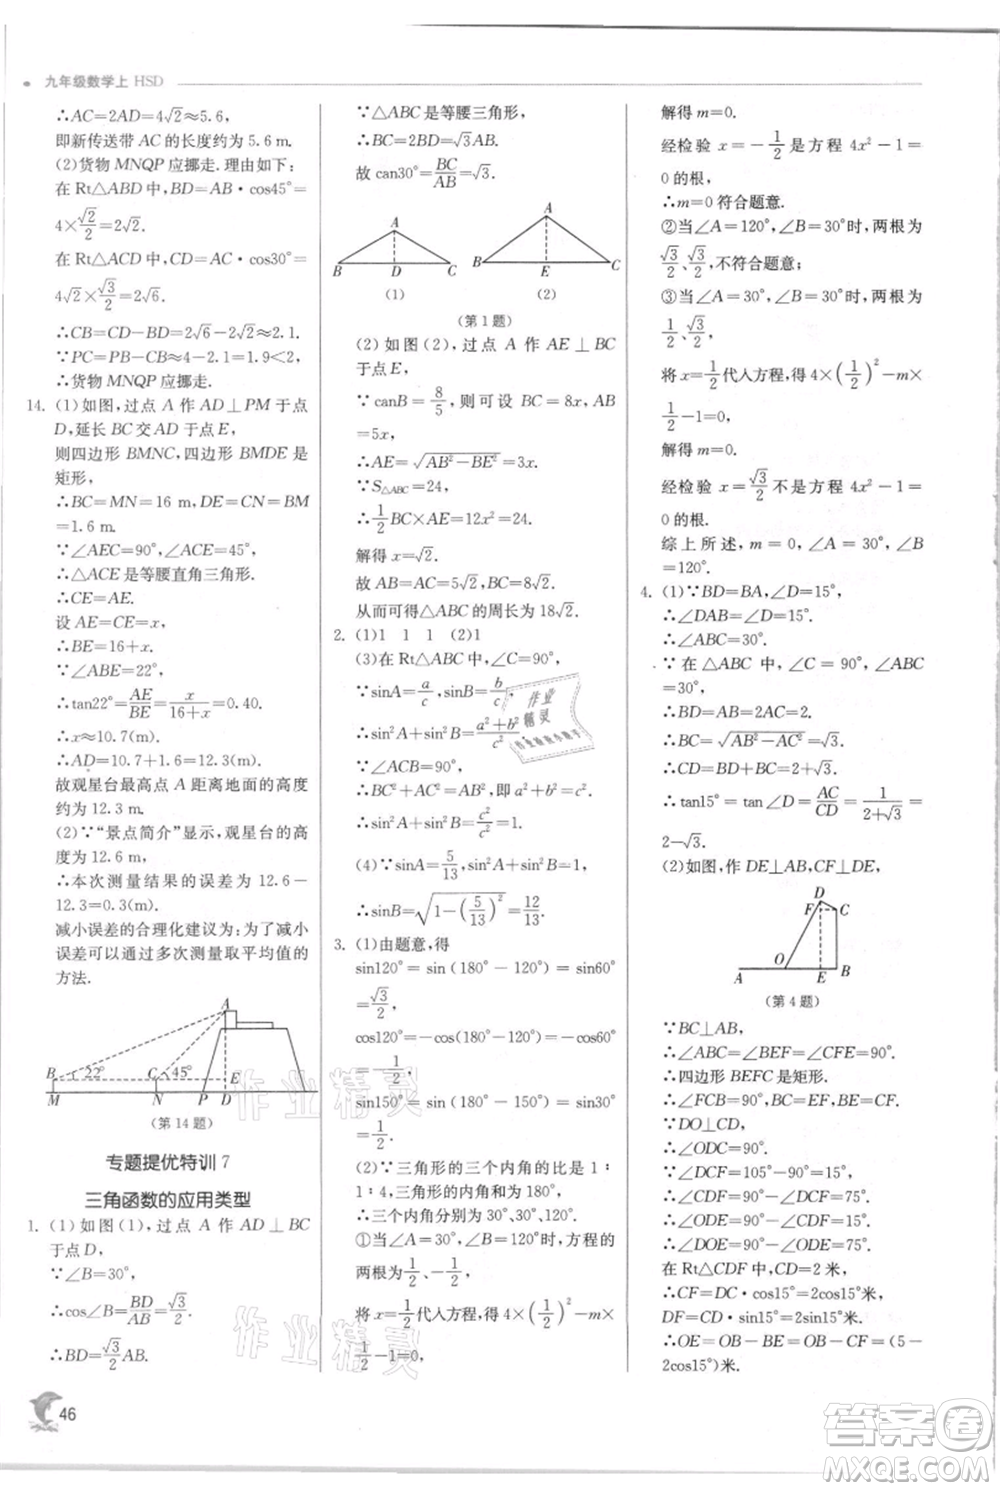 九年级数学上 HSD
∴AC=2AD=4√2≈5.6,
即新传送带 AC 的长度约为 5.6 m.
(2)货物 MNQP 应挪走.理由如下:
在 Rt△ABD 中,BD=AB·cos45°=
4×√2/2=2√2.
在 Rt△ACD 中,CD=AC·cos30°=
4√2×√3/2=2√6.
∴CB=CD-BD=2√6-2√2≈2.1.
∵PC=PB-CB≈4-2.1=1.9<2,
∴货物 MNQP 应挪走.
14. (1)如图,过点 A 作 AD⊥PM 于点
D,延长 BC 交 AD 于点 E,
则四边形 BMNC,四边形 BMDE 是
矩形,
∴BC=MN=16 m,DE=CN=BM
=1.6 m.
∵∠AEC=90°,∠ACE=45°,
∴△ACE 是等腰直角三角形.
∴CE=AE.
设 AE=CE=x,
∴BE=16+x.
∵∠ABE=22°,
∴tan22°=AE/BE=x/(16+x)≈0.40.
∴x≈10.7(m).
∴AD=10.7+1.6=12.3(m).
故观星台最高点 A 距离地面的高度
约为 12.3 m.
(2)∵“景点简介”显示,观星台的高
度为 12.6 m,
∴本次测量结果的误差为 12.6-
12.3=0.3(m).
减小误差的合理化建议为:为了减小
误差可以通过多次测量取平均值的
方法.
A
B 22° C 45° E
M N P D
(第 14 题)
专题提优特训 7
三角函数的应用类型
1. (1)如图(1),过点 A 作 AD⊥BC
于点 D,
∵∠B=30°,
∴cos∠B=BD/AB=√3/2,
∴BD=√3/2AB.
46
∵△ABC 是等腰三角形,
∴BC=2BD=√3AB.
故 can30°=BC/AB=√3.
A A
B D C B E C
(1) (2)
(第 1 题)
(2)如图(2),过点 A 作 AE⊥BC
于点 E,
∵canB=8/5,则可设 BC=8x,AB
=5x,
∴AE=√(AB²-BE²)=3x.
∵S△ABC=24,
∴1/2BC×AE=12x²=24.
解得 x=√2.
故 AB=AC=5√2,BC=8√2.
从而可得△ABC 的周长为 18√2.
2. (1)1 1 1 (2)1
(3)在 Rt△ABC 中,∠C=90°,
∵sinA=a/c,sinB=b/c,
∴sin²A+sin²B=(a²+b²)/c².
∵∠C=90°,
∴BC²+AC²=AB²,即 a²+b²=c².
∴sin²A+sin²B=c²/c²=1.
(4)∵sinA=5/13,sin²A+sin²B=1,
∴sinB=√(1-(5/13)²)=12/13.
3. (1)由题意,得
sin120°=sin(180°-120°)=sin60°
=√3/2,
cos120°=-cos(180°-120°)=-cos60°
=-1/2,
sin150°=sin(180°-150°)=sin30°
=1/2.
(2)∵三角形的三个内角的比是 1∶
1∶4,三角形的内角和为 180°,
∴三个内角分别为 30°、30°、120°.
①当∠A=30°,∠B=120°时,方程的
两根为1/2、-1/2,
将 x=1/2代人方程,得 4×(1/2)²-m×
1/2-1=0,
解得 m=0.
经检验 x=-1/2是方程 4x²-1=
0 的根.
∴m=0 符合题意.
②当∠A=120°,∠B=30°时,两根为
√3/2、√3/2,不符合题意;
③当∠A=30°,∠B=30°时,两根为
1/2、√3/2,
将 x=1/2代人方程,得 4×(1/2)²-m×
1/2-1=0,
解得 m=0.
经检验 x=√3/2不是方程 4x²-1=
0 的根.
综上所述,m=0,∠A=30°,∠B=
120°.
4. (1)∵BD=BA,∠D=15°,
∴∠DAB=∠D=15°.
∴∠ABC=30°.
∵在△ABC 中,∠C=90°,∠ABC=
30°,AC=1,
∴BD=AB=2AC=2.
∴BC=√(AB²-AC²)=√3.
∴CD=BD+BC=2+√3.
∴tan15°=tan∠D=AC/CD=1/(2+√3)=
2-√3.
(2)如图,作 DE⊥AB,CF⊥DE,
D
F C
A O E B
(第 4 题)
∵BC⊥AB,
∴∠ABC=∠BEF=∠CFE=90°.
∴四边形 BEFC 是矩形.
∴∠FCB=90°,BC=EF,BE=CF.
∵DO⊥CD,
∴∠ODC=90°.
∵∠DCF=105°-90°=15°,
∴∠CDF=90°-∠DCF=75°.
∴∠ODE=90°-∠CDF=15°.
∴∠DOE=90°-∠ODE=75°.
在 Rt△CDF 中,∵CD=2 米,
∴CF=DC·cos15°=2cos15°米,
DF=CD·sin15°=2sin15°米.
∴OE=OB-BE=OB-CF=(5-
2cos15°)米.
作业精灵
作业精灵
作业精灵
答案圈
MXQE.COM